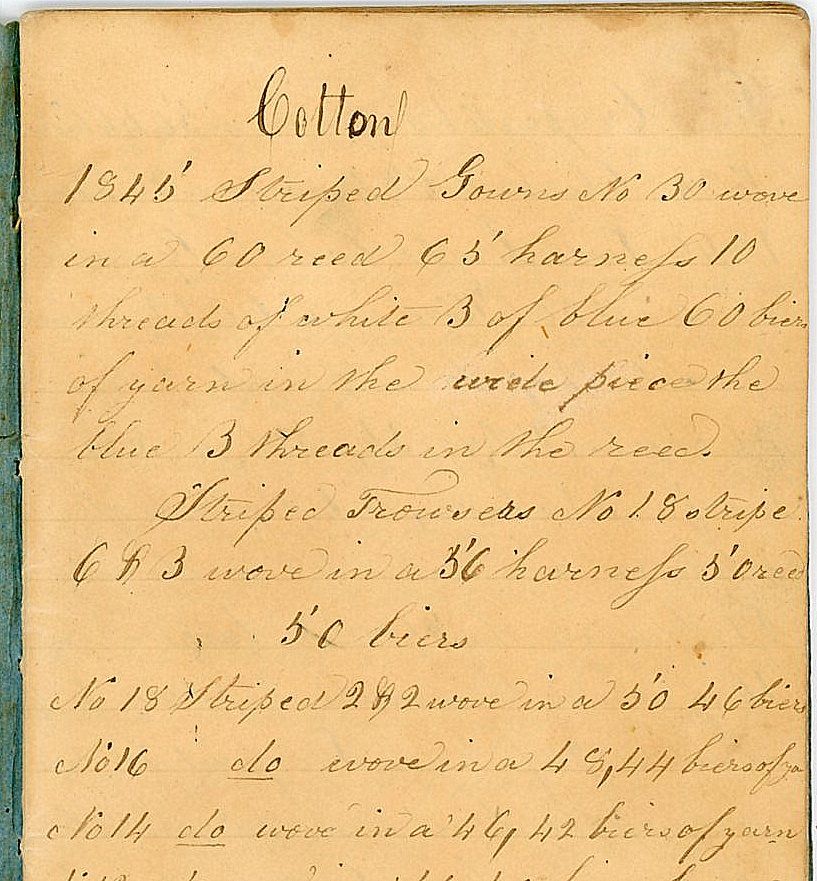 Cotton
1845 Striped Gowns No 30 wove
in a 60 reed 65 harness 10
threads of white 3 of blue 60 biers
of yarn in the wide piece the
blue 3 threads in the reed.
Striped Trowsers No 18 stripe
6 & 3 wove in a 56 harness 50 reed
50 biers
No 18 Striped 2 & 2 wove in a 50 46 biers
No 16 do wove in a 48, 44 biers of ya
No 14 do wove in a 46, 42 biers of yarn